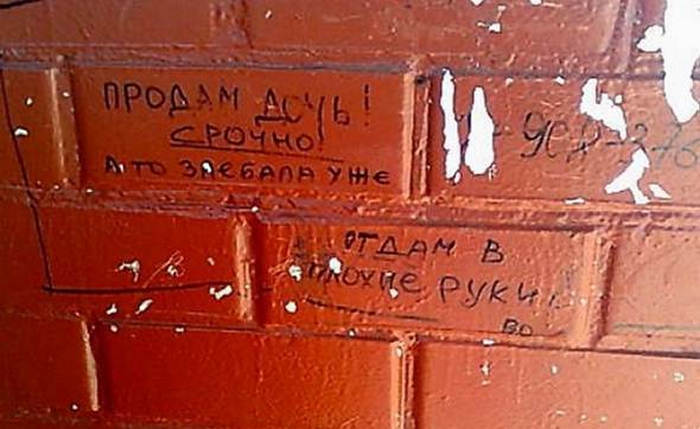 ПРОДАМ ДОЧЬ!
СРОЧНО!
А ТО ЗАЕБАЛА УЖЕ
ОТДАМ В
ПЛОХИЕ РУКИ!
ВО